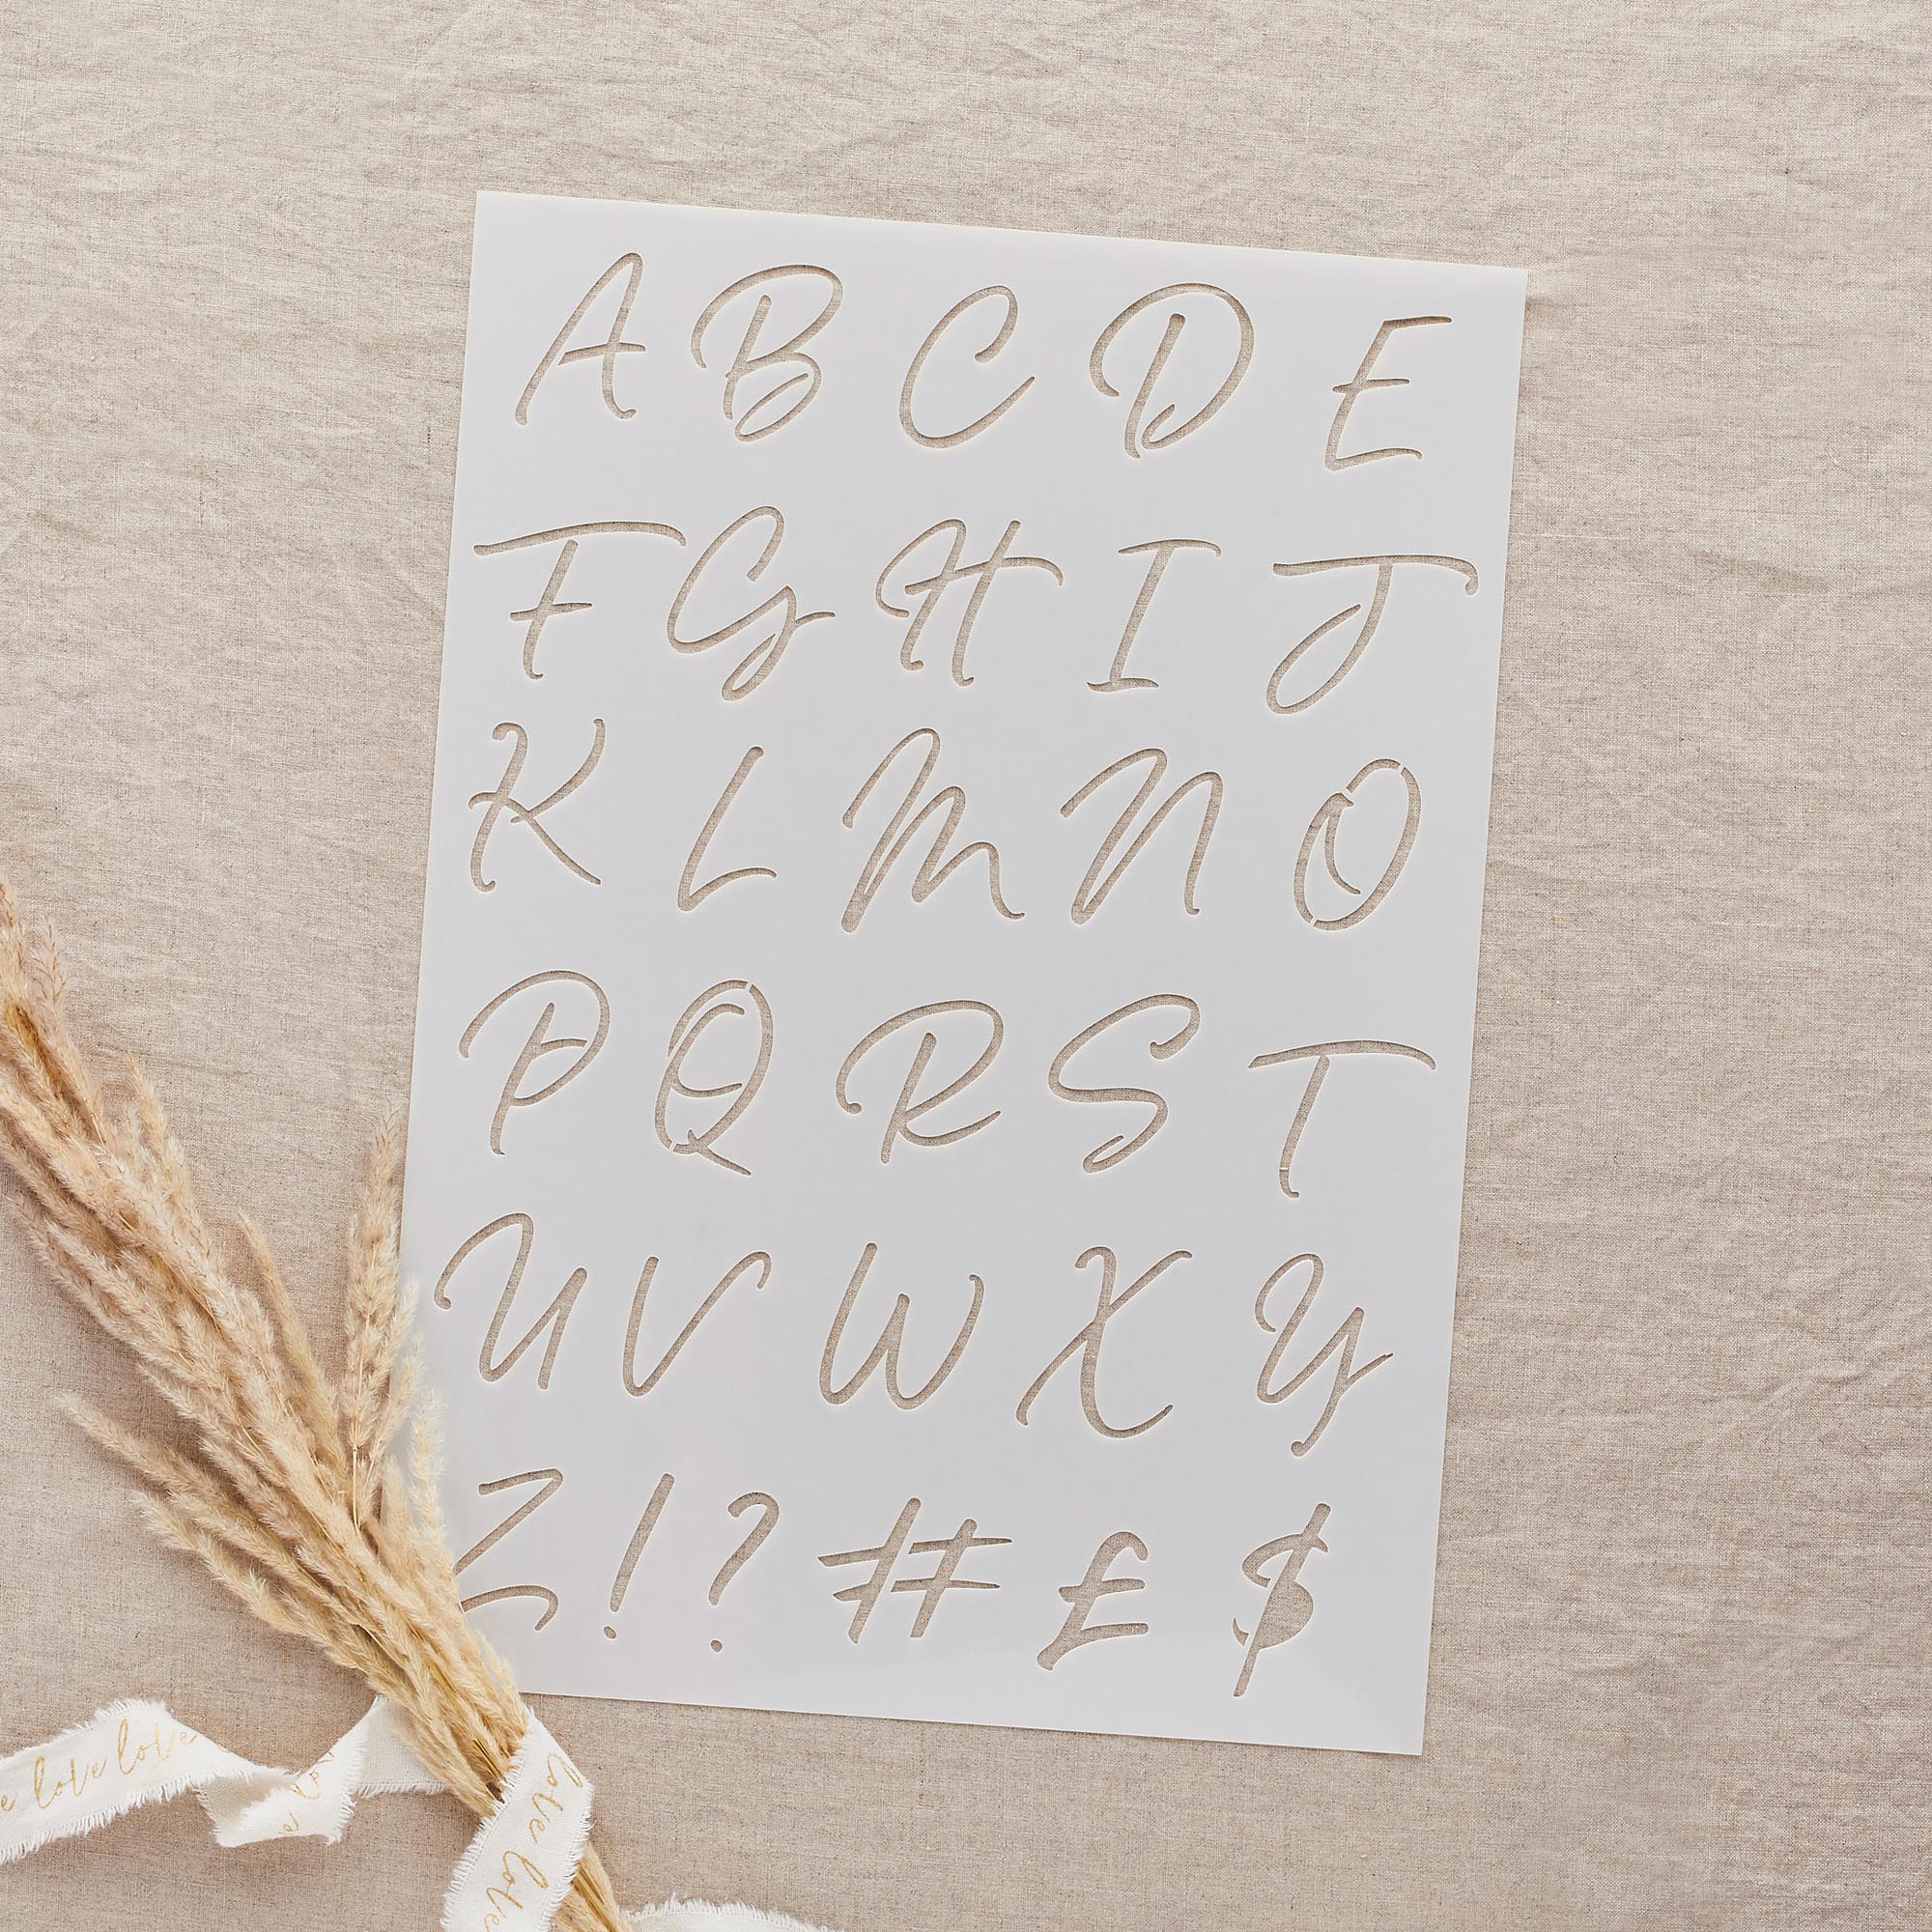 A B C D E
F G H I J
K L M N O
P Q R S T
U V W X Y
Z ! ? # £ $
love love
love love